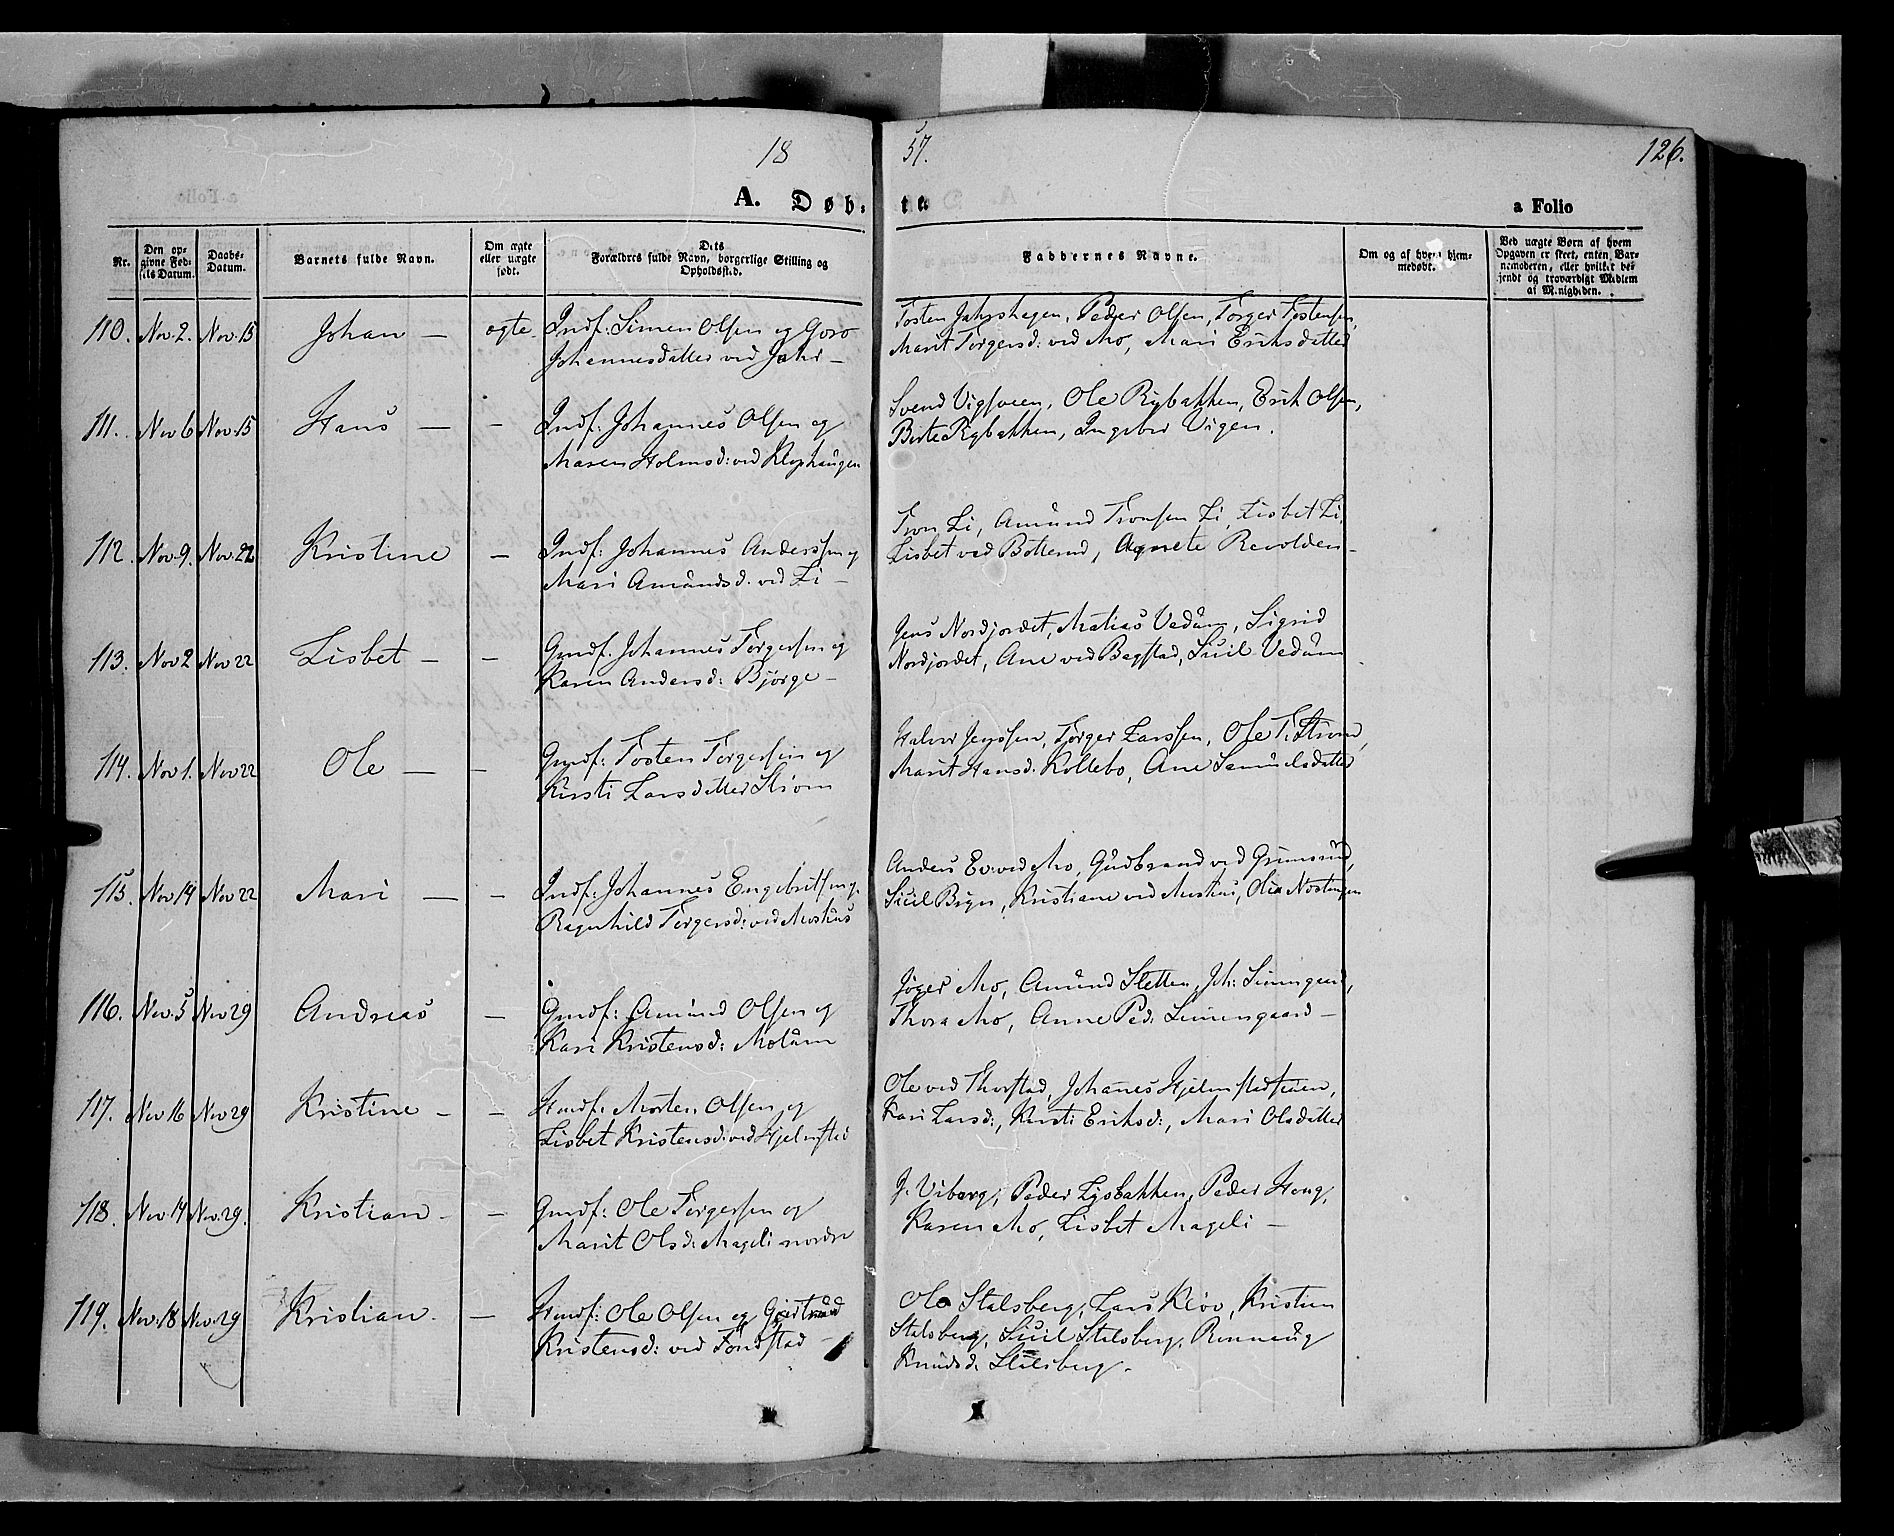 18 57. 126.
A. Døb- te. a Folio
Nr. Den opgivne Fødsels Datum. Daabs-Datum. Barnets fulde Navn. Om ægte eller uægte født. Dets Forældres fulde Navn, borgerlige Stilling og Opholdssted. Faddernes Navne. Om og af hvem hjemmedøbt. Ved uægte Børn af hvem Opgaven er skeet, enten Barnemoderen, eller hvilket bekjendt og troværdigt Medlem af Menigheden.
110. Nov. 2. Nov. 15 Johan — ægte Indf: Simen Olsen og Goro
Johannesdatter ved Jahr —
Tosten Jahrshagen, Peder Olsen, Torger Tostensen,
Marit Torgersd: ved Mo, Mari Eriksdatter
111. Nov 6 Nov. 15 Hans — — Indf: Johannes Olsen og
Maren Holmsd: ved Klophaugen
Svend Vigsveen, Ole Rybakken, Erik Olsen,
Berte Rybakken, Ingebor Vigen.
112. Nov. 9. Nov. 22 Kristine — Indf: Johannes Anderssen og
Mari Amundsd. ved Li —
Tron Li, Amund Tronsen Li, Lisbet Li,
Lisbet ved Botterud, Agnete Revolden —
113. Nov 2 Nov 22 Lisbet — — Gmdf. Johannes Torgersen og
Karen Andersd: Bjørge —
Jens Nordjordet, Matias Vedum, Sigrid
Nordjordet, Ane ved Bagstad, Siril Vedum
114. Nov 1. Nov 22 Ole — — Gmdf: Tosten Torgersen og
Kirsti Larsdatter Strøm
Halvor Jenssen, Torger Larssen, Ole T. Strøm,
Marit Hansd: Kollebo, Ane Samuelsdatter
115. Nov 14 Nov 22 Mari — — Indf: Johannes Engebritsen og
Ragnhild Torgersd: ved Moshus
Anders Ev: ved Mo, Gudbrand ved Grimsrud,
Siril Bryn, Kristiane ved Moshus, Olia Nostingen
116. Nov. 5 Nov 29 Andreas — Gmdf: Amund Olsen og
Kari Kristensd: Molum
Jøger Mo, Amund Sletten, Joh: Simengaard,
Thora Mo, Anne Ped: Simengaard —
117. Nov 16 Nov 29 Kristine — — Husf: Morten Olsen og
Lisbet Kristensd: ved Hjelmstad
Ole ved Thorstad, Johanes Hjelmstadstuen,
Kari Larsd:, Kirsti Eriksd:, Mari Olsdatter
118. Nov 14 Nov. 29. Kristian — — Gmdf: Ole Torgersen og
Marit Olsd: Mageli nordre
J. Viborg, Peder Lysbakken, Peder Haug,
Karen Mo, Lisbet Mageli —
119. Nov. 18 Nov. 29 Kristian. — Husf: Ole Olsen og Gjertrud
Kristensd: ved Fondstad —
Ole Stalsberg, Lars Kløv, Kristian
Stalsberg, Siril Stalsberg, Rønnaug
Knudsd. Stalsberg.